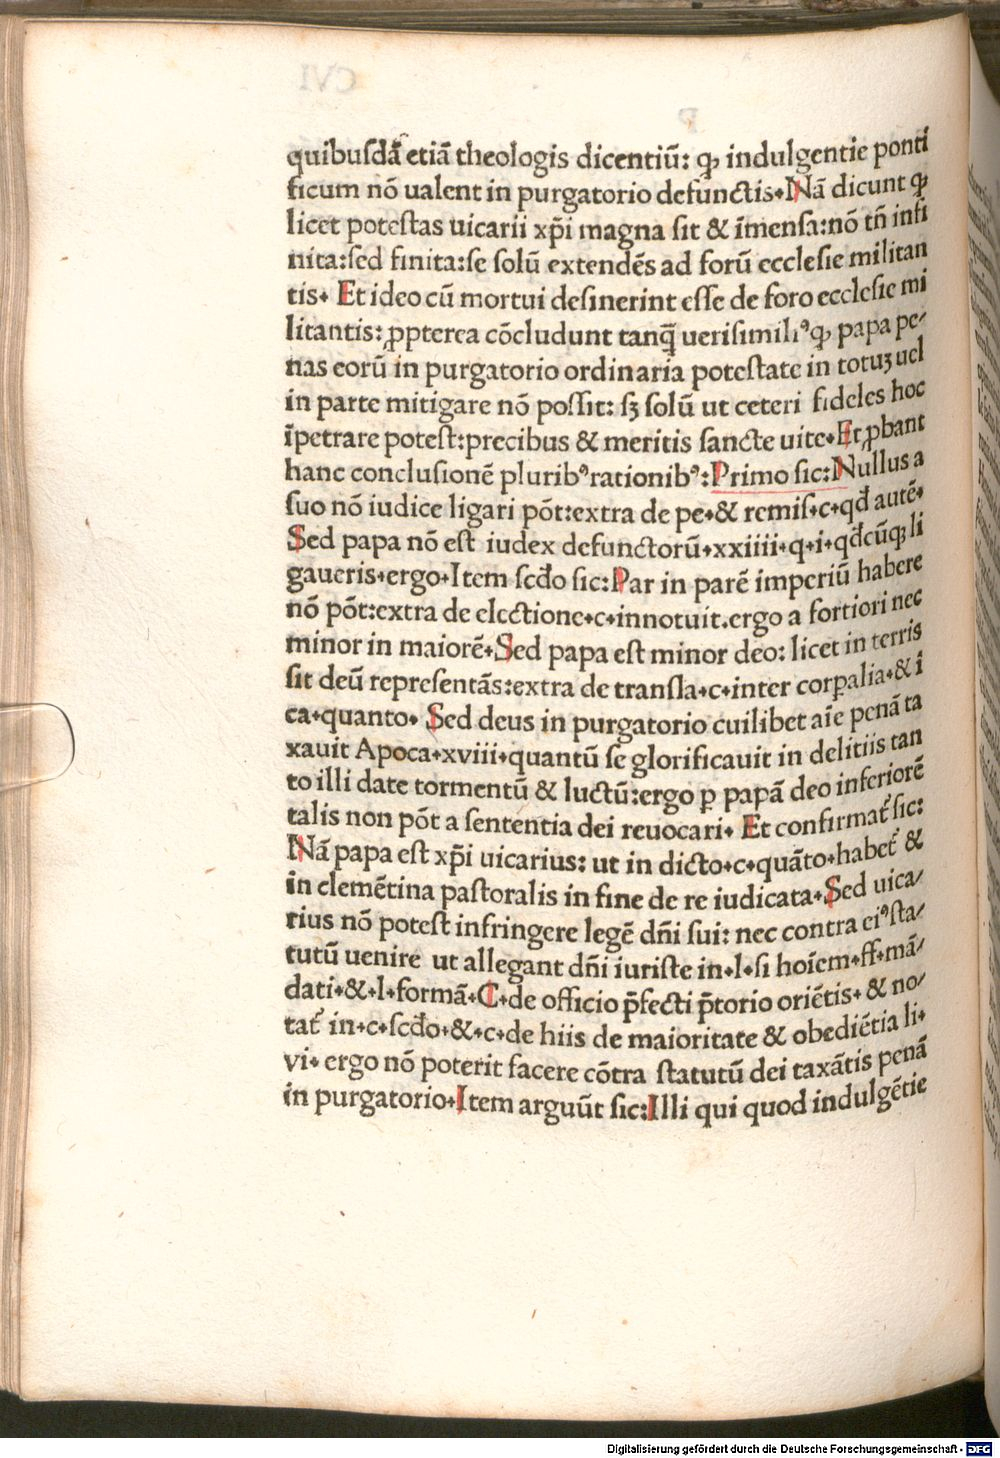 quibuſdã etiã theologis dicentiũ: ꝙ indulgentie ponti
ficum nõ ualent in purgatorio defunctis. Nã dicunt ꝙ
licet poteſtas uicarii xp̃i magna ſit & ĩmenſa: nõ tñ infi
nita: ſed finita: ſe ſolũ extendẽs ad forũ eccleſie militan
tis. Et ideo cũ mortui deſinerint eſſe de foro eccleſie mi
litantis: ꝓpterea cõcludunt tanq̃ ueriſimiliꝰ ꝙ papa pe-
nas eorũ in purgatorio ordinaria poteſtate in totuꝫ uel
in parte mitigare nõ poſſit: ſꝫ ſolũ ut ceteri fideles hoc
ĩpetrare poteſt: precibus & meritis ſancte uite. Et ꝓbant
hanc concluſionẽ pluribꝰ rationibꝰ: Primo ſic: Nullus a
ſuo nõ iudice ligari põt: extra de pe. & remiſ. c. qđ autẽ.
Sed papa nõ eſt iudex defunctorũ. xxiiii. q. i. qđcũqꝫ li
gaueris. ergo. Item ſcđo ſic: Par in parẽ imperiũ habere
nõ põt: extra de electione. c. innotuit. ergo a fortiori nec
minor in maiorẽ. Sed papa eſt minor deo: licet in terris
ſit deũ repreſentãs: extra de tranſla. c. inter corꝑalia. & ĩ
ca. quanto. Sed deus in purgatorio cuilibet aĩe penã ta
xauit Apoca. xviii. quantũ ſe glorificauit in delitiis tan
to illi date tormentũ & luctũ: ergo ꝑ papã deo inferiorẽ
talis non põt a ſententia dei reuocari. Et confirmat̃ ſic:
Nã papa eſt xp̃i uicarius: ut in dicto. c. quãto. habet̃ &
in clemẽtina paſtoralis in fine de re iudicata. Sed uica-
rius nõ poteſt infringere legẽ dñi ſui: nec contra eiꝰ ſta-
tutũ uenire ut allegant dñi iuriſte in. l. ſi hoĩem. ff. mã-
dati. & l. formã. C. de officio p̃fecti p̃torio oriẽtis. & no-
tat̃ in. c. ſcđo. &. c. de hiis de maioritate & obediẽtia li.
vi. ergo nõ poterit facere cõtra ſtatutũ dei taxãtis penã
in purgatorio. Item arguũt ſic: Illi qui quod indulgẽtie
Digitalisierung gefördert durch die Deutsche Forschungsgemeinschaft - DFG